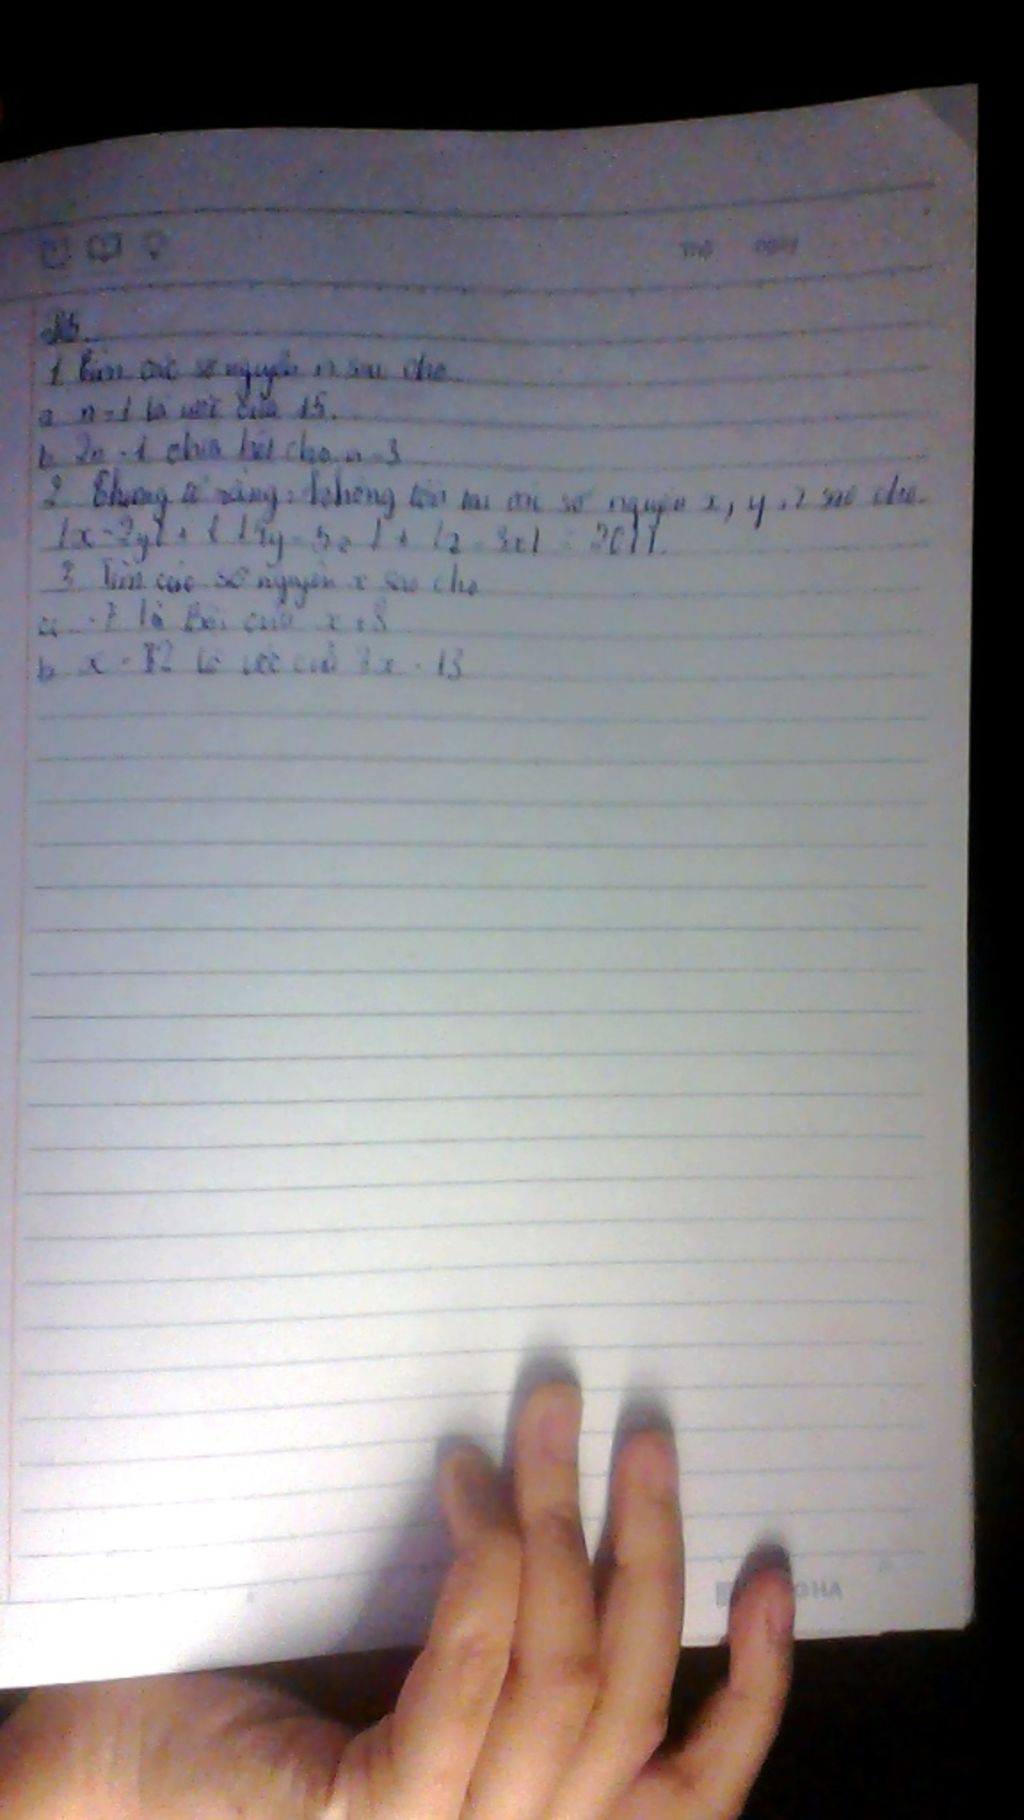 Thứ ngày
1. Tìm các số nguyên n sau cho
a. n - 1 là ước của 15.
b. 2n - 1 chia hết cho n - 3
2. Chứng tỏ rằng: không tồn tại các số nguyên x, y, z sao cho.
|x - 2y| + |4y - 5z| + |z - 3x| = 2011.
3. Tìm các số nguyên x sao cho
a. -7 là Bội của x + 8
b. x - 2 là ước của 3x - 13
OHA